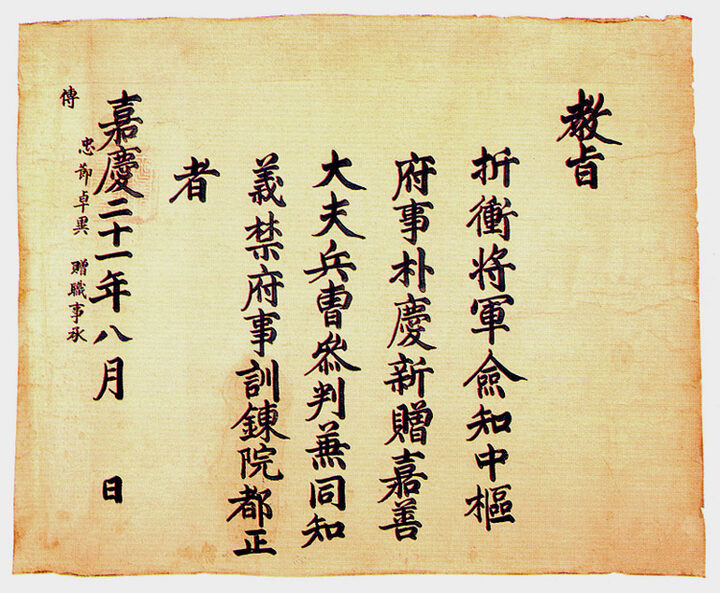 教旨
折衝將軍僉知中樞
府事朴慶新贈嘉善
大夫兵曹叅判兼同知
義禁府事訓鍊院都正
者
嘉慶二十一年八月 日
忠節卓異 贈職事承
傳